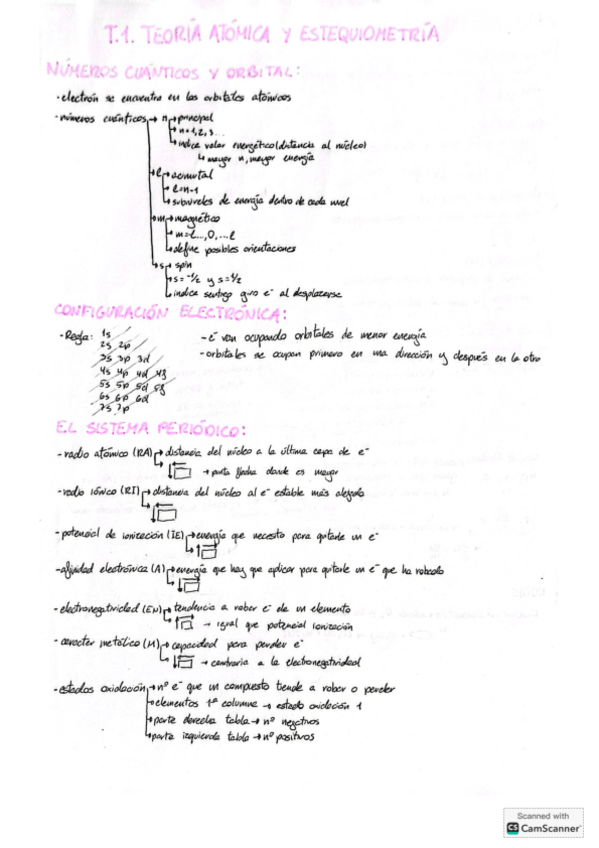 T.1. TEORÍA ATÓMICA Y ESTEQUIOMETRÍA
NÚMEROS CUÁNTICOS Y ORBITAL:
- electrón se encuentra en los orbitales atómicos
- números cuánticos → n → principal
→ n = 1, 2, 3...
→ indica valor energético (distancia al núcleo)
↳ mayor n, mayor energía
→ l → azimutal
→ l = n-1
→ subniveles de energía dentro de cada nivel
→ m → magnético
→ m = -l..., 0, ...l
→ define posibles orientaciones
→ s → spin
→ s = -1/2 y s = 1/2
→ indica sentido giro e⁻ al desplazarse
CONFIGURACIÓN ELECTRÓNICA:
- Regla: 1s
2s 2p
3s 3p 3d
4s 4p 4d 4f
5s 5p 5d 5f
6s 6p 6d
7s 7p
- e⁻ van ocupando orbitales de menor energía
- orbitales se ocupan primero en una dirección y después en la otra
EL SISTEMA PERIÓDICO:
- radio atómico (RA) → distancia del núcleo a la última capa de e⁻
→ punta flecha donde es mayor
- radio iónico (RI) → distancia del núcleo al e⁻ estable más alejado
- potencial de ionización (IE) → energía que necesito para quitarle un e⁻
- afinidad electrónica (A) → energía que hay que aplicar para quitarle un e⁻ que ha robado
- electronegatividad (EN) → tendencia a robar e⁻ de un elemento
→ igual que potencial ionización
- carácter metálico (M) → capacidad para perder e⁻
→ contraria a la electronegatividad
- estados oxidación → nº e⁻ que un compuesto tiende a robar o perder
→ elementos 1ª columna → estado oxidación 1
→ parte derecha tabla → nº negativos
→ parte izquierda tabla → nº positivos
Scanned with
CS CamScanner